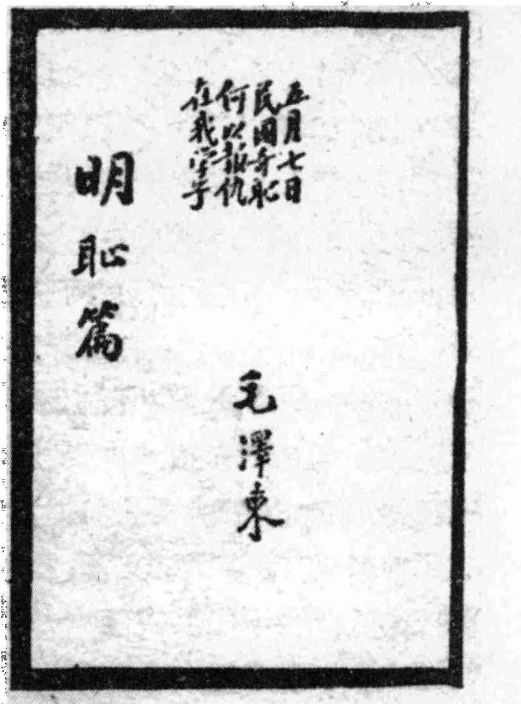 五月七日
民國奇恥
何以報仇
在我學子
毛澤東
明恥篇